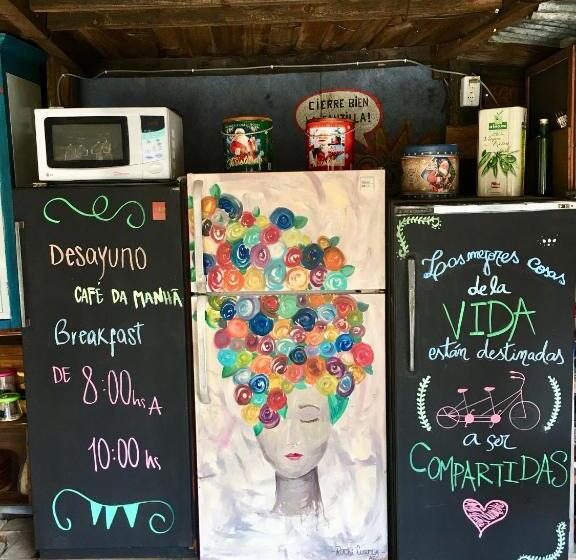 CIERRE BIEN
Desayuno
CAFÉ DA MANHÃ
Breakfast
DE 8:00hs A
10:00 hs
Las mejores cosas
de la
VIDA
están destinadas
a ser
COMPARTIDAS